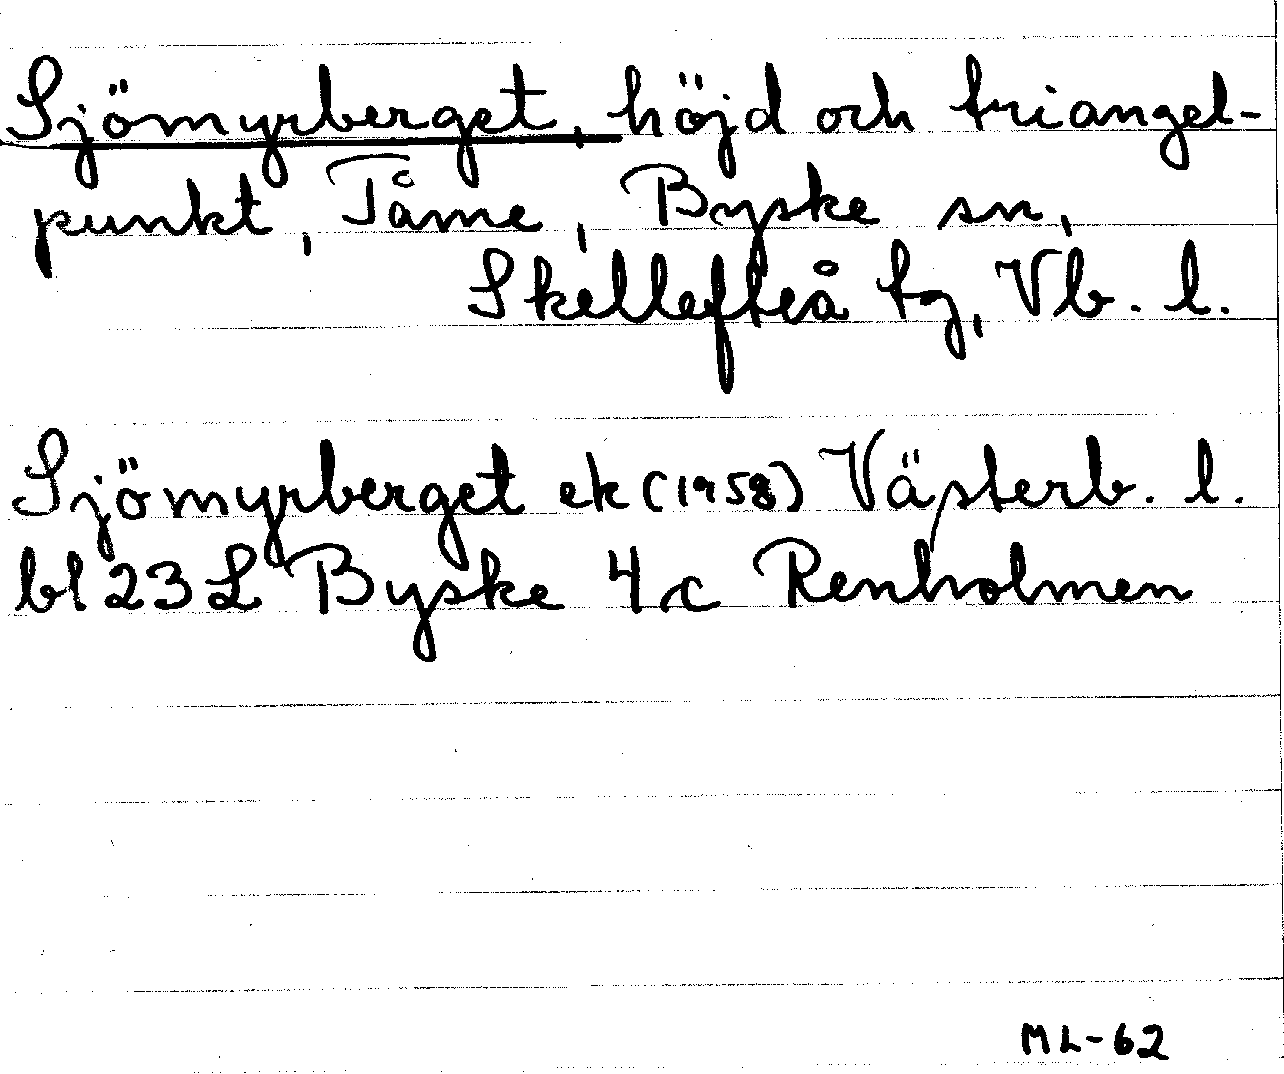 Sjömyrberget, höjd och triangel-
punkt, Tåme, Byske sn,
Skellefteå tg, Vb. l.
Sjömyrberget ek (1958) Västerb. l.
bl 23 L Byske 4c Renholmen
ML-62